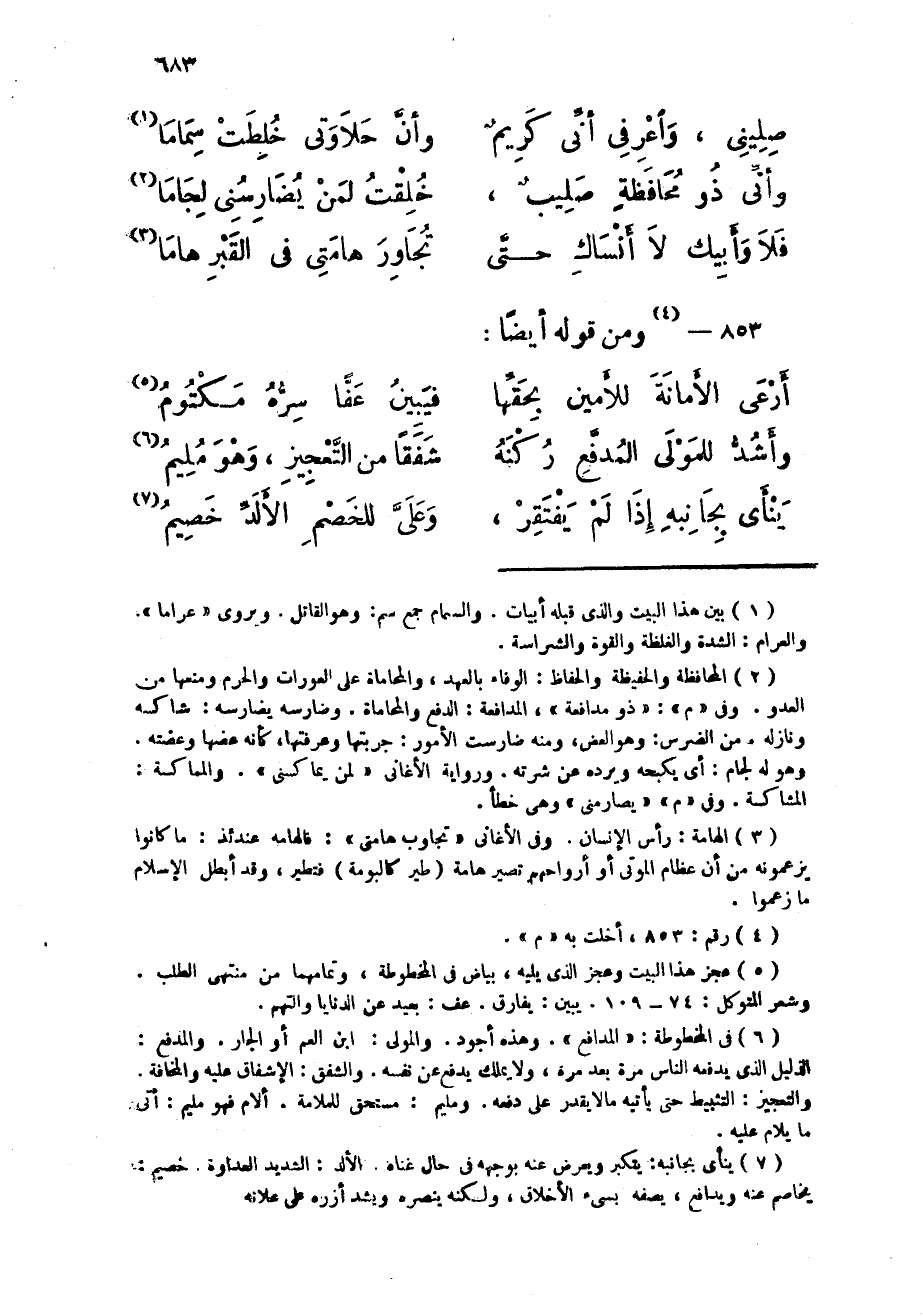 ٦٨٣
صِلِينِى ، وَأعْرِفِى أنِّى كَرِيمٌ وأنَّ حَلَاوَتِى خُلِطَتْ سِمَامَا (١)
وأنِّى ذُو مُحَافَظَةٍ صَلِيبٌ ، خُلِقْتُ لمَنْ يُضَارِسُنِى لِجَامَا (٢)
فَلَا وَأَبِيكِ لاَ أَنْسَاكِ حـتَّى تُجَاوِرَ هامَتِى فى القَبْرِ هامَا (٣)
٨٥٣ – (٤) ومن قوله أيضًا :
أَرْعَى الأَمانَةَ للأَمينِ بِحَقِّها فيَبِينُ عَفًّا سِرُّهُ مَـكْتُومُ (٥)
وأَشُدُّ للمَوْلَى المُدفَّعِ رُكْنَهُ شَفَقًا من التَّعْجِيزِ ، وَهْوَ مُلِيمُ (٦)
يَنْأَى بِجَانِبهِ إِذَا لَمْ يَفْتَقِرْ ، وَعَلَىَّ للخَصْمِ الأَلَدِّ خَصِيمُ (٧)
( ١ ) بين هذا البيت والذى قبله أبيات . والسمام جمع سم: وهوالقاتل . ويروى « عراما ».
والعرام : الشدة والغلظة والقوة والشراسة .
( ٢ ) المحافظة والحفيظة والحفاظ : الوفاء بالعهد ، والمحاماة على العورات والحرم ومنعها من
العدو . وفى « م » : « ذو مدافعة » ، المدافعة : الدفع والمحاماة . وضارسه يضارسه : شاكسه
ونازله . من الضرس: وهوالعض، ومنه ضارست الأمور : جربتها وعرفتها، كأنه عضها وعضته .
وهو له لجام : أى يكبحه ويرده عن شرته . ورواية الأغانى « لمن يماكسنى » . والمماكسة :
المشاكسة . وفى « م » « يصارمنى » وهى خطأ .
( ٣ ) الهامة : رأس الإنسان . وفى الأغانى « تجاوب هامتى » : فالهامه عندئذ : ما كانوا
يزعمونه من أن عظام الموتى أو أرواحهم تصير هامة ( طير كالبومة ) فتطير ، وقد أبطل الإسلام
ما زعموا .
( ٤ ) رقم : ٨٥٣ ، أخلت به « م » .
( ٥ ) عجز هذا البيت وعجز الذى يليه ، بياض فى المخطوطة ، وتمامهما من منتهى الطلب .
وشعر المتوكل : ٧٤ – ١٠٩ . يبين : يفارق . عف : بعيد عن الدنايا والتهم .
( ٦ ) فى المخطوطة : « المدافع » . وهذه أجود . والمولى : ابن العم أو الجار . والمدفع :
الذليل الذى يدفعه الناس مرة بعد مرة ، ولايملك يدفع عن نفسه . والشفق : الإشفاق عليه والمخافة .
والتعجيز : التثبيط حتى يأتيه مالايقدر على دفعه . ومليم : مستحق للملامة . ألام فهو مليم : أتى
ما يلام عليه .
( ٧ ) ينأى بجانبه: يتكبر ويعرض عنه بوجهه فى حال غناه . الألد : الشديد العداوة . خصيم :
يخاصم عنه ويدافع ، يصفه بسىء الأخلاق ، ولـكنه ينصره ويشد أزره على علاته